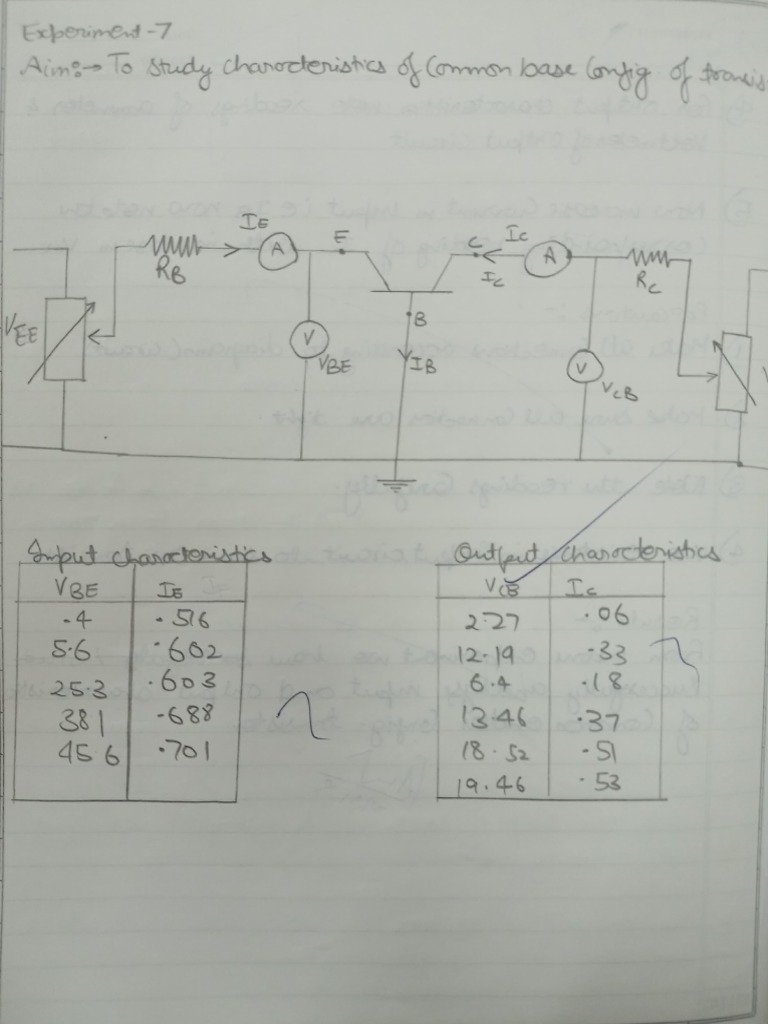 Experiment-7
Aim:→ To study characteristics of Common base Config of transis
IE
E
C
IC
A
A
RB
IC
RC
VEE
B
V
VBE
IB
V
VCB
Input characteristics
VBE IE
.4 .516
5.6 .602
253 .603
381 .688
456 .701
Output characteristics
VCB IC
2.27 .06
12.19 .33
6.4 .18
13.46 .37
18.52 .51
19.46 .53